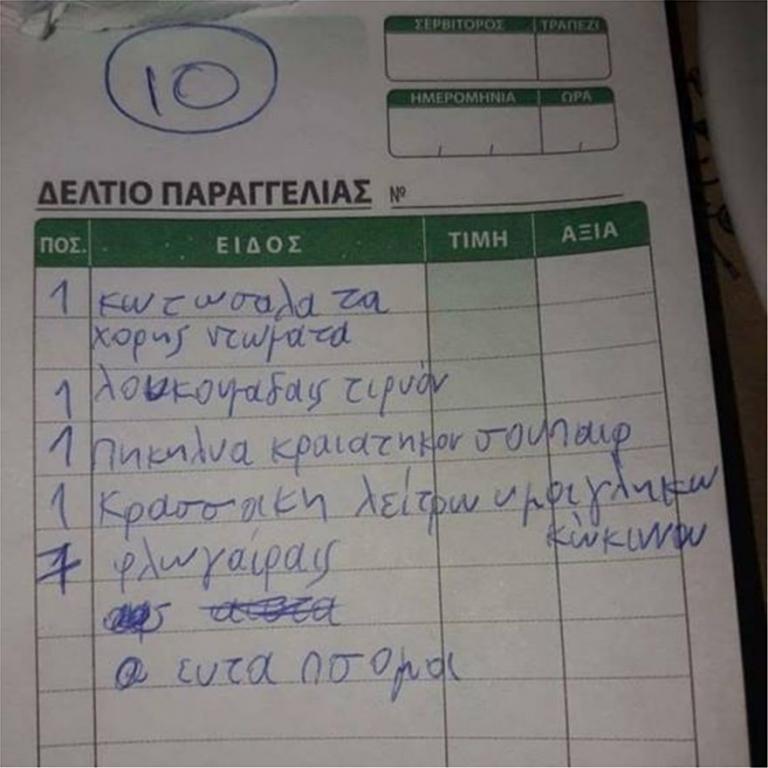 10
ΣΕΡΒΙΤΟΡΟΣ ΤΡΑΠΕΖΙ
ΗΜΕΡΟΜΗΝΙΑ ΩΡΑ
ΔΕΛΤΙΟ ΠΑΡΑΓΓΕΛΙΑΣ Νº
ΠΟΣ. ΕΙΔΟΣ ΤΙΜΗ ΑΞΙΑ
1 κωτωσαλατα
χορης ντωματα
1 λουκουμαδαις τιρυόν
1 πηκηλυα κραιατηκον σουπαιρ
1 Κρασσακη λείτρω ημοιγληκων
κώκινου
1 φλωγαίραις
ευτα ησομαι